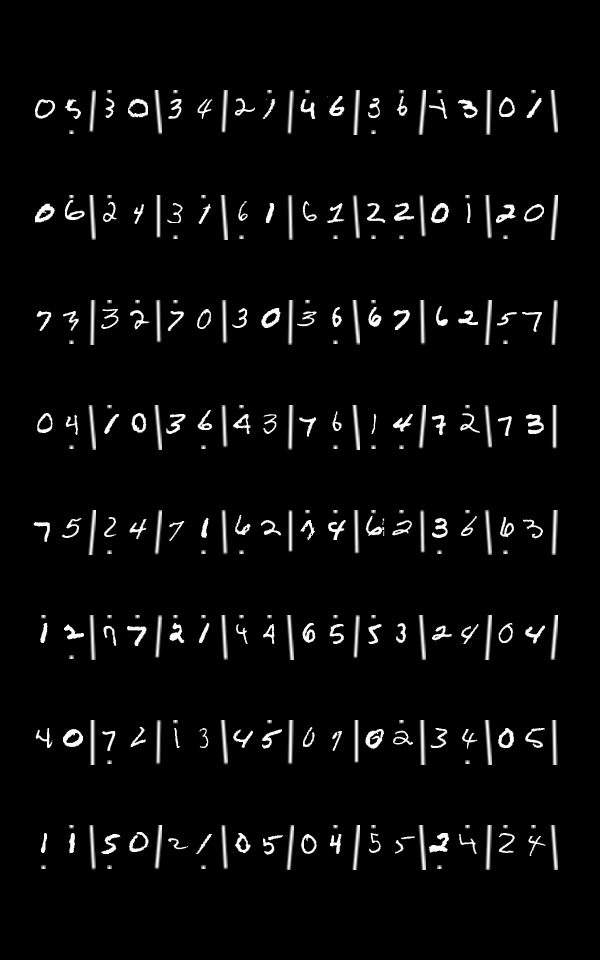 0 5 | 3 0 | 3 4 | 2 1 | 4 6 | 3 6 | 4 3 | 0 1 |
0 6 | 2 4 | 3 1 | 6 1 | 6 1 | 2 2 | 0 1 | 2 0 |
7 3 | 3 2 | 7 0 | 3 0 | 3 6 | 6 7 | 6 2 | 5 7 |
0 4 | 1 0 | 3 6 | 4 3 | 7 6 | 1 4 | 7 2 | 7 3 |
7 5 | 2 4 | 7 1 | 6 2 | 7 4 | 6 2 | 3 6 | 6 3 |
1 2 | 7 7 | 2 1 | 4 4 | 6 5 | 5 3 | 2 4 | 0 4 |
4 0 | 7 2 | 1 3 | 4 5 | 0 7 | 0 2 | 3 4 | 0 5 |
1 1 | 5 0 | 2 1 | 0 5 | 0 4 | 5 5 | 2 4 | 2 4 |